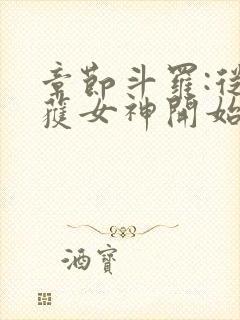 章節斗羅:從
獲女神開始
酒寶